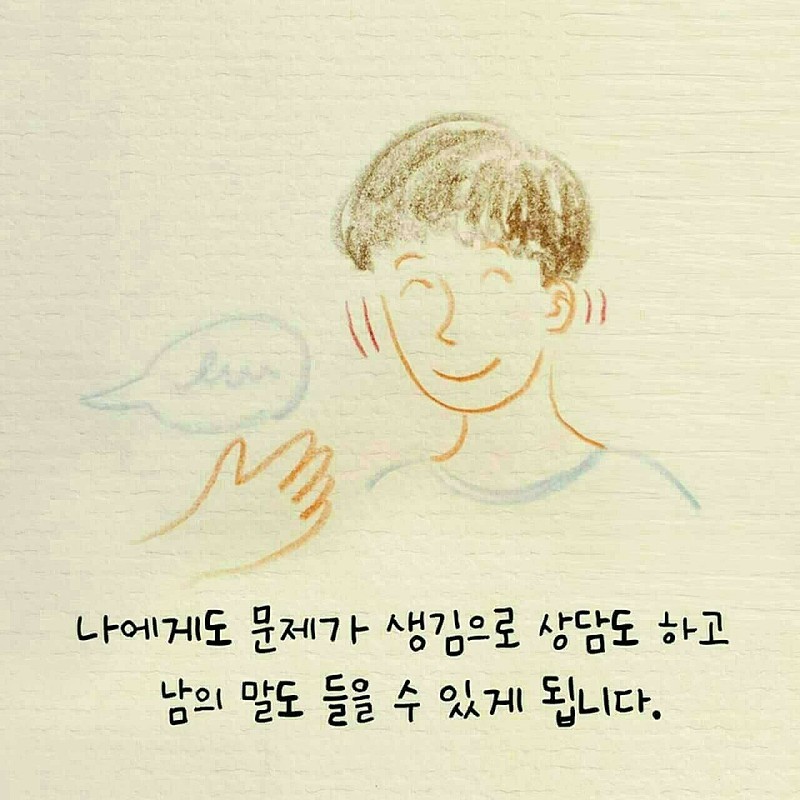 나에게도 문제가 생김으로 상담도 하고
남의 말도 들을 수 있게 됩니다.